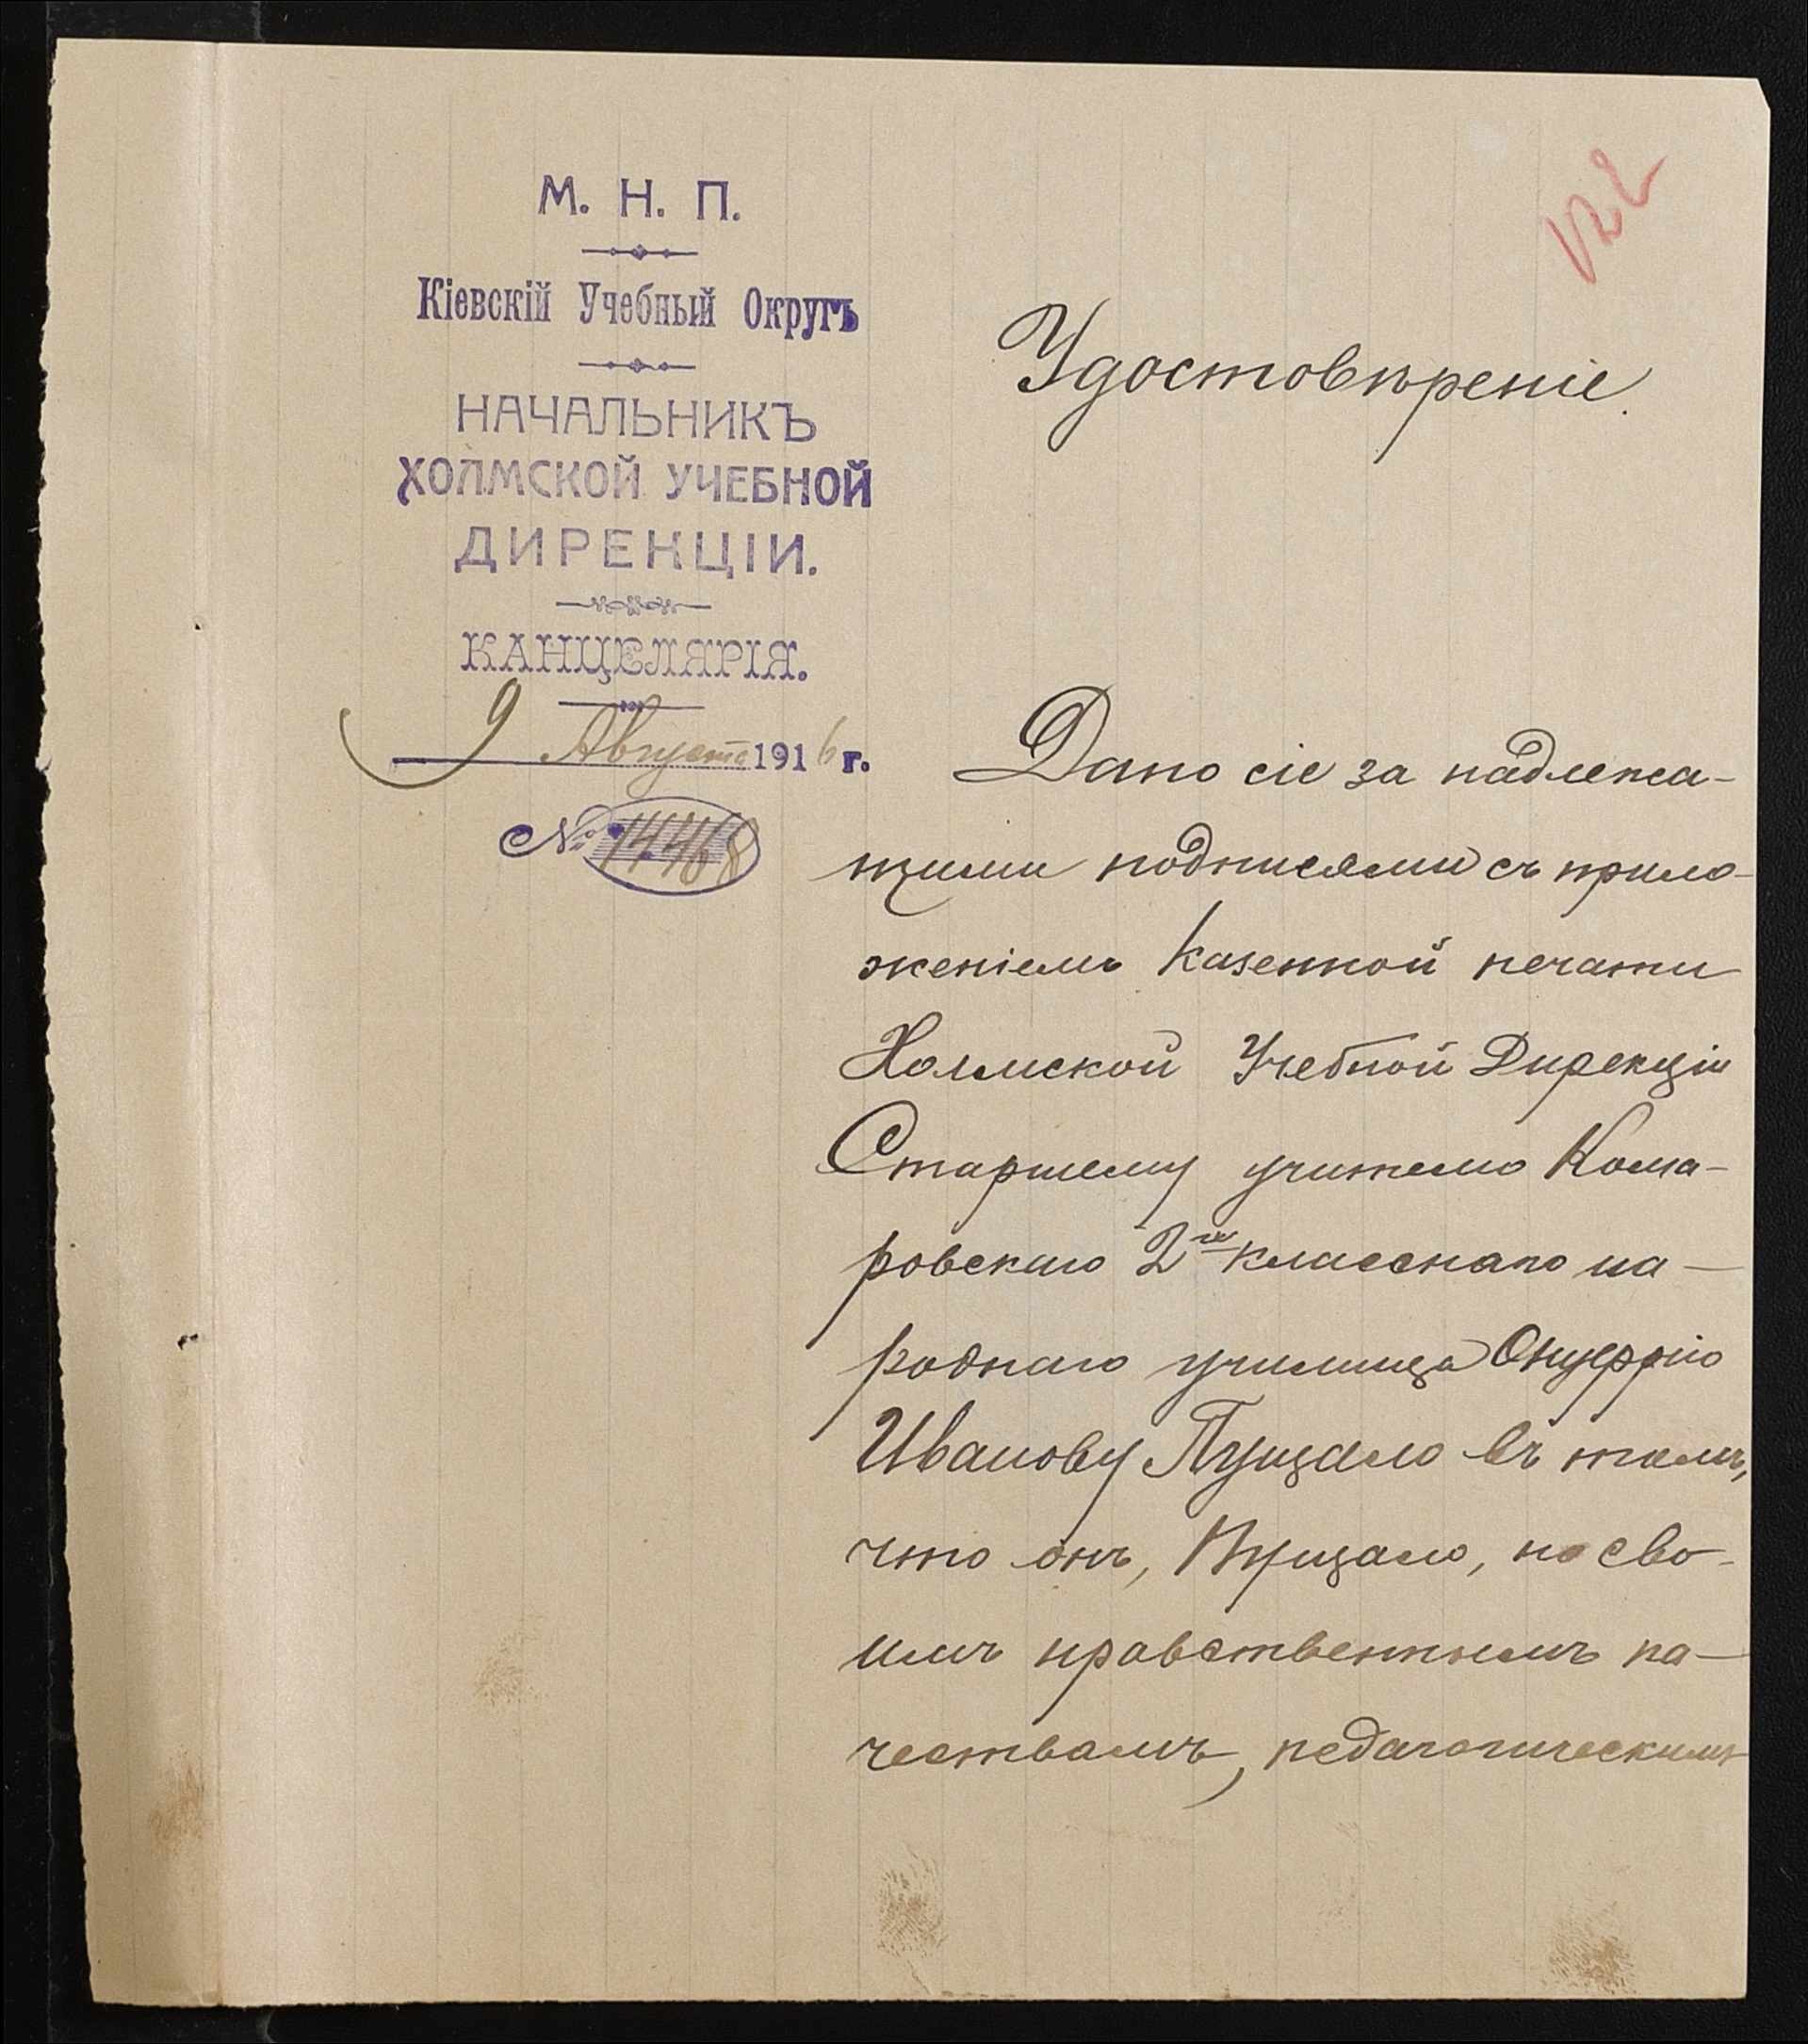 122
М. Н. П.
Кіевскій Учебный Округъ
НАЧАЛЬНИКЪ
ХОЛМСКОЙ УЧЕБНОЙ
ДИРЕКЦІИ.
КАНЦЕЛЯРІЯ.
9 Августа 1916 г.
№ 14468
Удостовѣреніе.
Дано сіе за надлежа-
щими подписями съ прило-
женіемъ казенной печати
Холмской Учебной Дирекціи
Старшему учителю Кома-
ровскаго 2хъ класснаго на-
роднаго училища Онуфрію
Иванову Пущало въ томъ,
что онъ, Пущало, по сво-
имъ нравственнымъ ка-
чествамъ, педагогическимъ